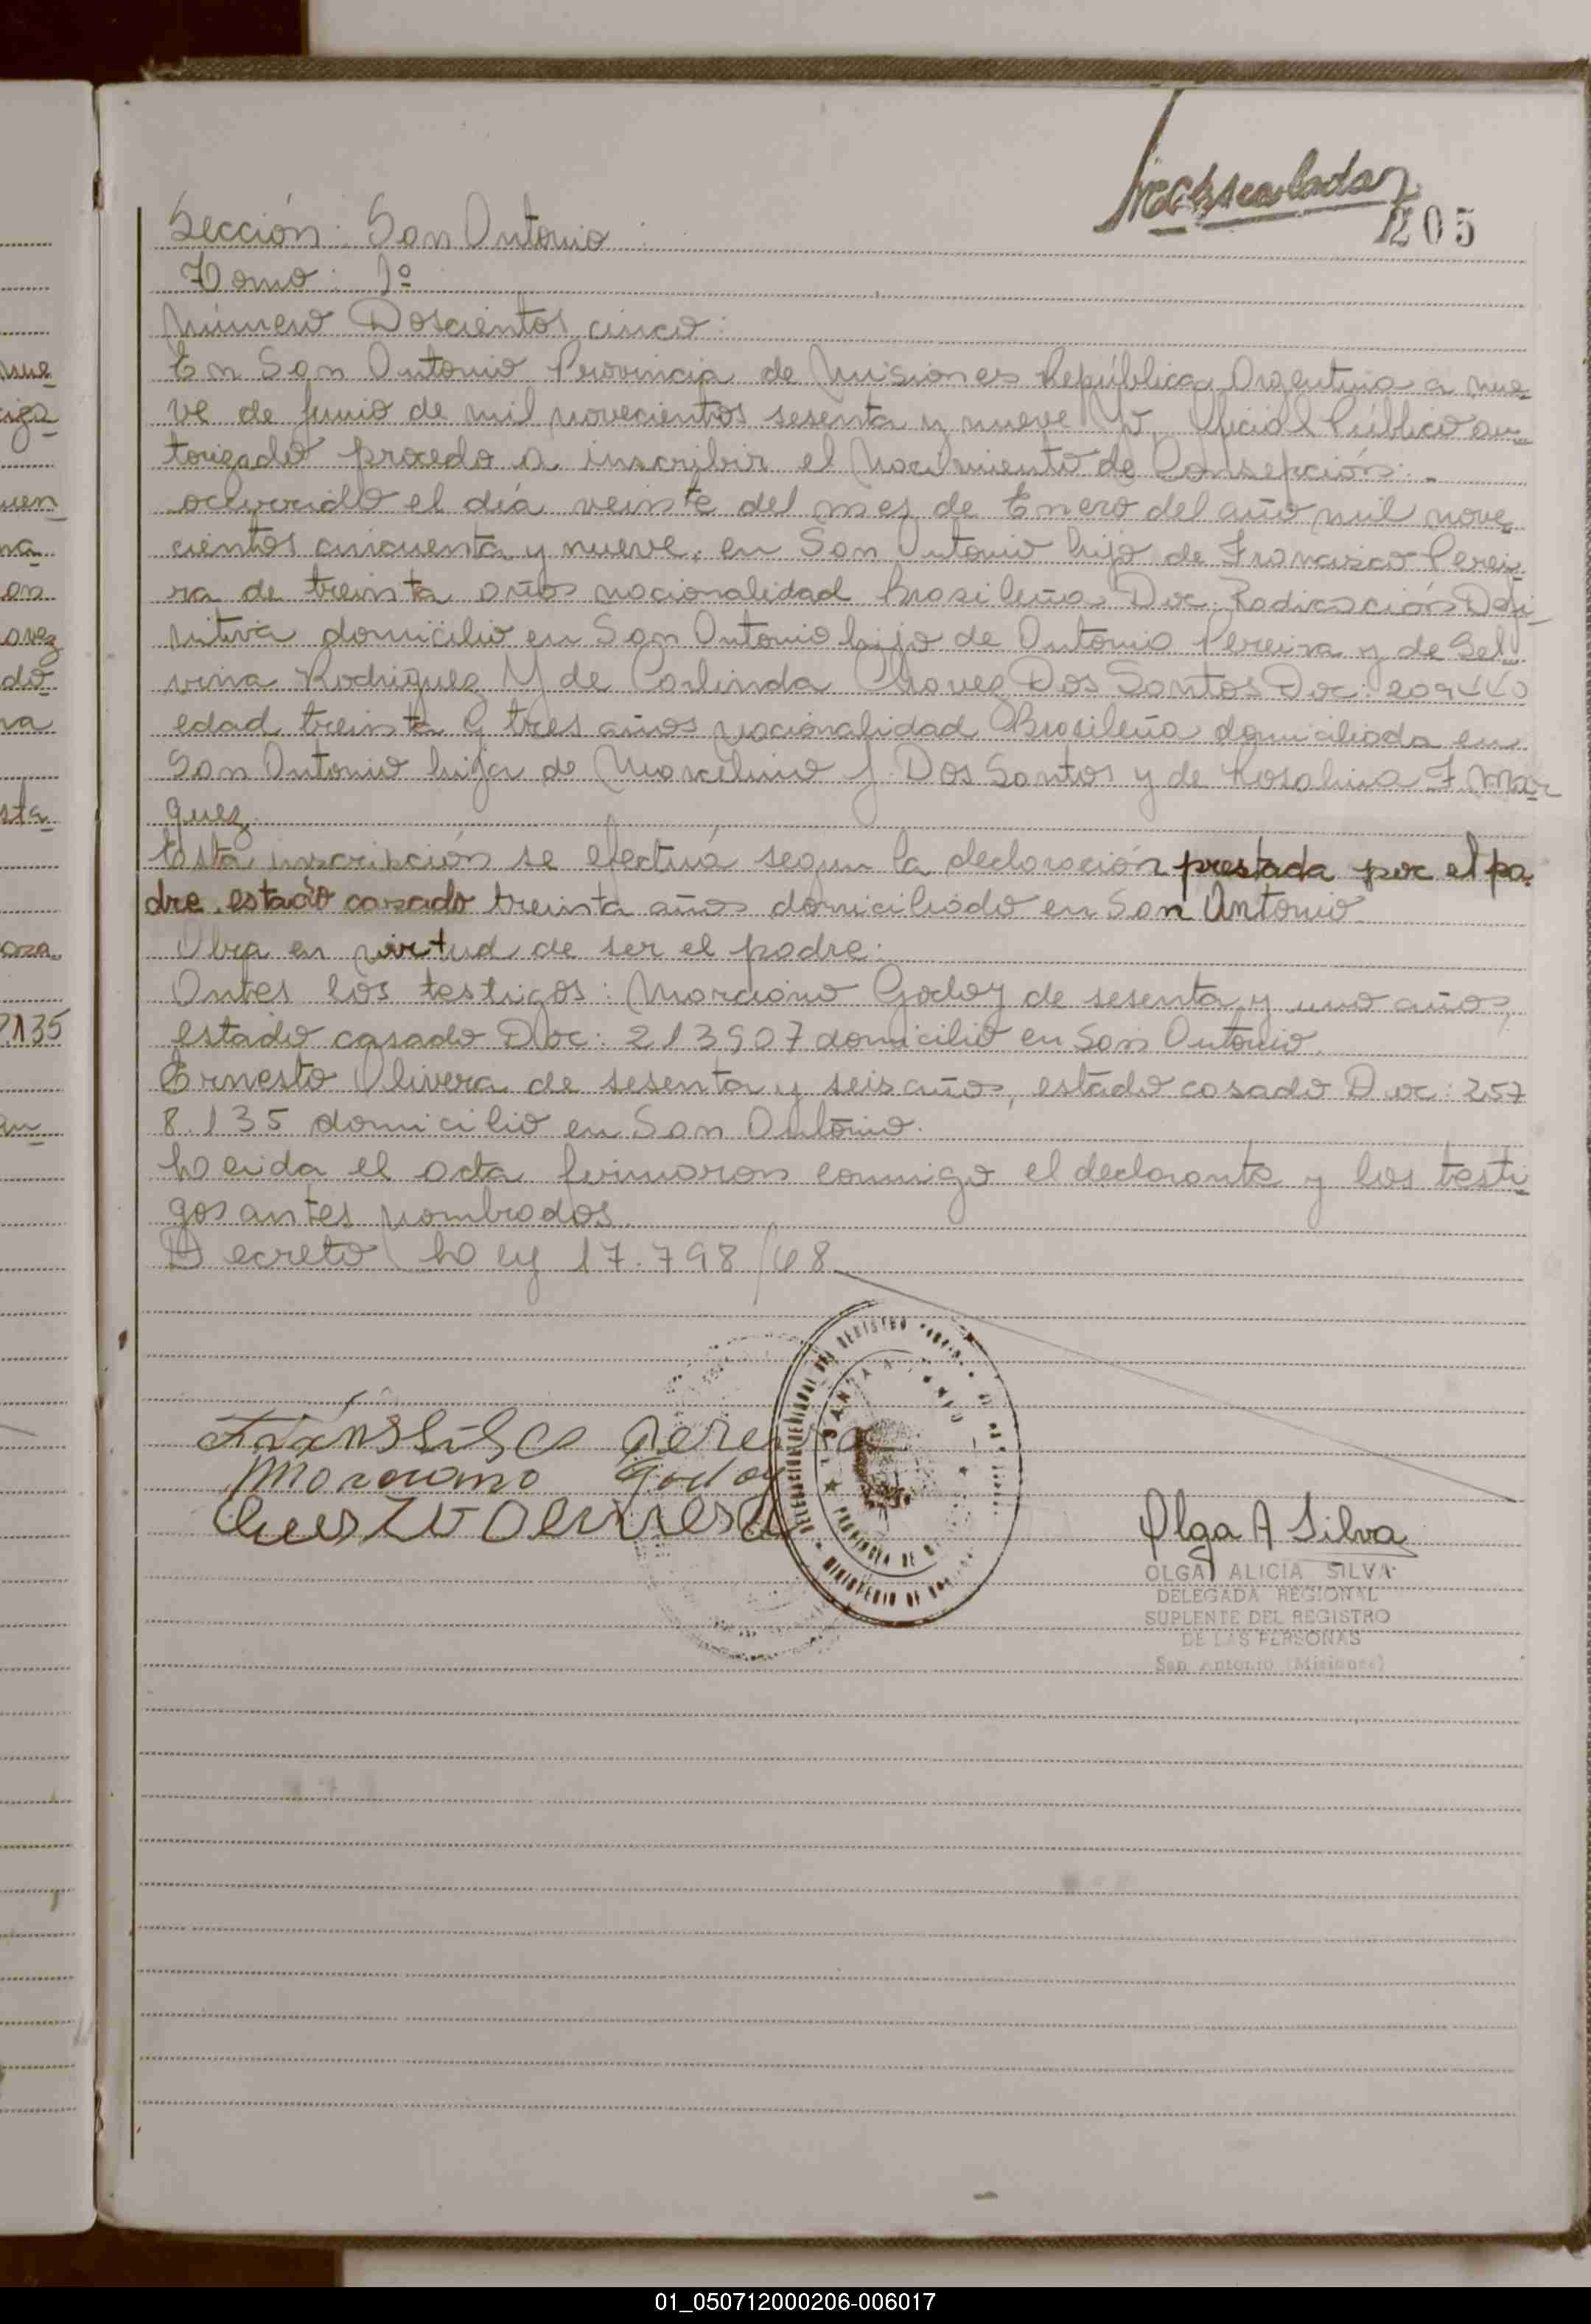 205
Sección: San Antonio:
Tomo: 1º
Número Doscientos cinco:
En San Antonio Provincia de Misiones República Argentina a nue-
ve de Junio de mil novecientos sesenta y nueve Yo, Oficial Público au-
torizado procedo a inscribir el Nacimiento de Consepción:-
ocurrido el día veinte del mes de Enero del año mil nove-
cientos cincuenta y nueve, en San Antonio hijo de Francisco Perei-
ra de treinta años nacionalidad Brasileña Doc: Radicación Defi-
nitiva domicilio en San Antonio hijo de Antonio Pereira y de Sel-
vina Rodriguez Y de Carlinda Chavez Dos Santos Doc:
edad treinta y tres años nacionalidad Brasileña domiciliada en
San Antonio hija de Marcelino J. Dos Santos y de Rosalina F. Mar-
quez
Esta inscripción se efectuá segun la declaración prestada por el pa-
dre, estado casado treinta años domiciliado en San Antonio
Obra en virtud de ser el padre:
Antes los testigos: Marciano Godoy de sesenta y uno años,
estado casado Doc: 213907 domicilio en San Antonio.
Ernesto Olivera de sesenta y seis años, estado casado Doc: 257
8.135 domicilio en San Antonio.
Leida el acta firmaron conmigo el declarante y los testi-
gos antes nombrados.
Decreto Ley 17.798/68
Pereira
Marciano Godoy
Olga A Silva
OLGA ALICIA SILVA
DELEGADA REGIONAL
SUPLENTE DEL REGISTRO
DE LAS PERSONAS
San Antonio (Misiones)
01_050712000206-006017